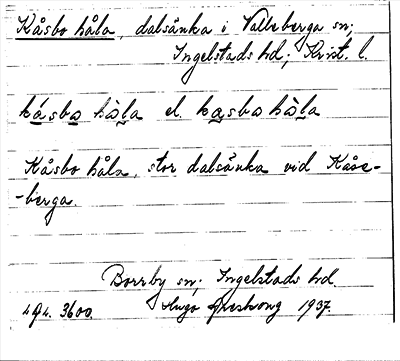 Kåsbo håla, dalsänka i Valleberga sn;
Ingelstads hd; Krist. l.
kåsbo håla el. kasbo håla
Kåsbo håla, stor dalsänka vid Kåse-
-berga.
Borrby sn; Ingelstads hd.
Hugo 1937.